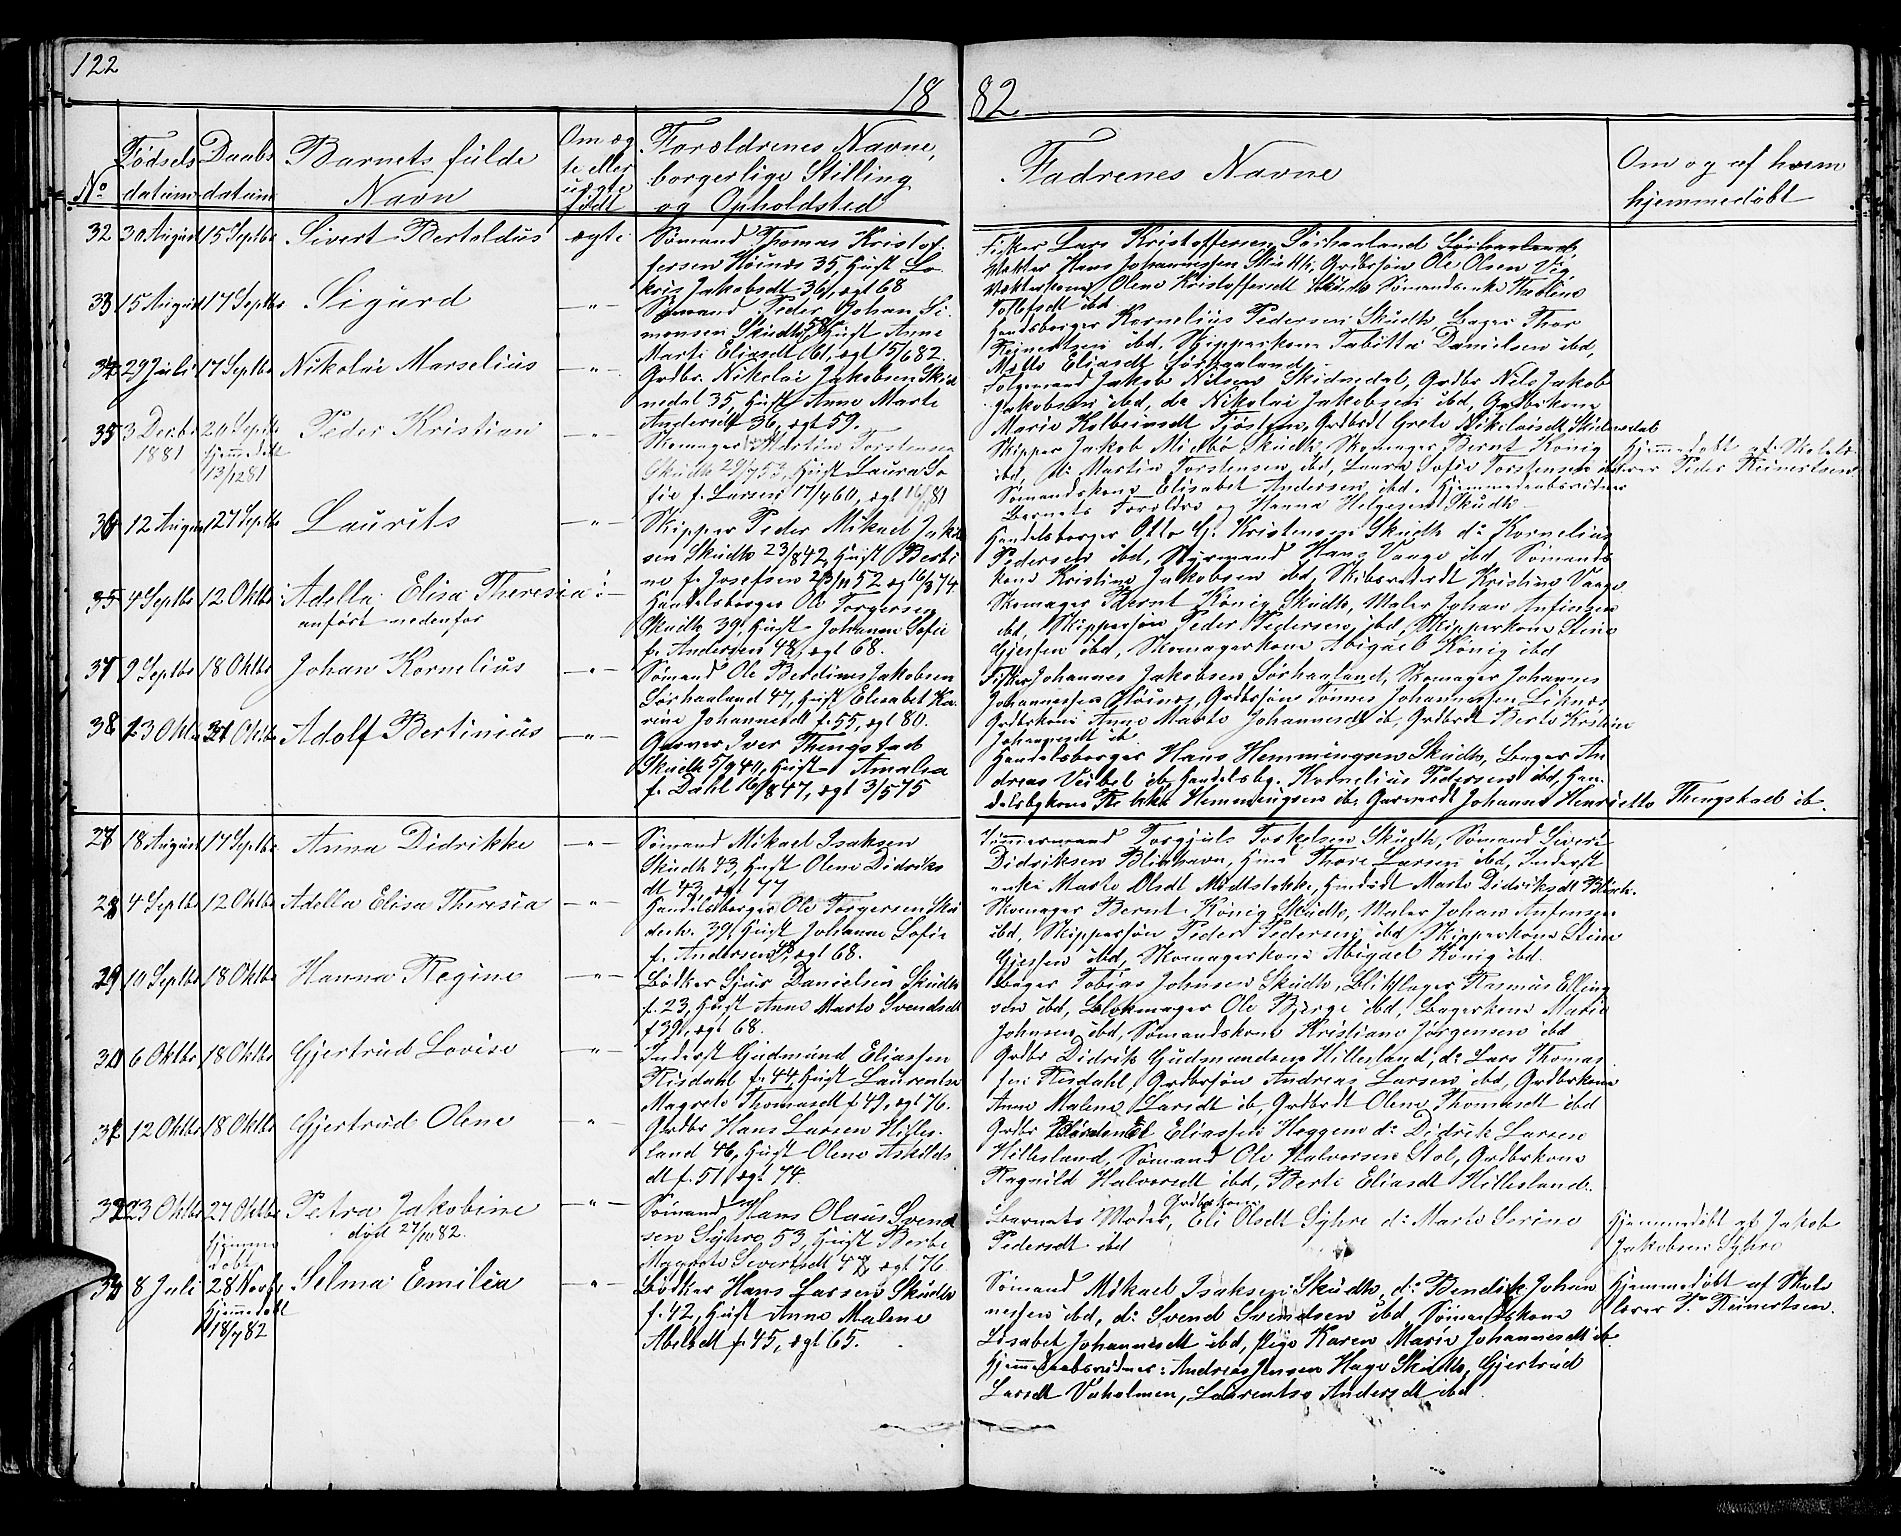 122
18 82.
No
Fødsels datum
Daabs datum
Barnets fulde Navn
Om ægte eller uægte født
Forældrenes Navne, borgerlige Stilling og Opholdsted
Fadrenes Navne
Om og af hvem hjemmedøbt
32 30 August 15 Septbr Sivert Bertoldus ægte
Sømand Thomas Kristof-
fersen Høinæs 35, Hust Lo-
vise Jakobsdt 36, ægt 68
Fisker Lars Kristoffersen Sørhaaland
Vækter Hans Johannessen Skudh, Grdbrsøn Ole Olsen Vig
Vækterkone Oline Kristoffersdt Skudh Sømandsenke
Tollefsdt ibd.
33 15 August 17 Septbr Sigurd -"-
Sømand Peder Johan Si-
monsen Skudh 58, Hust Anne
Marti Eliasdt 61, ægt 15/6 82.
Handelsborger Kornelius Pedersen Skudh, Bager Thor
Reinertsen ibd, Skipperkone Tabitta Danielsen ibd,
Eliasdt Sørhaaland
34 29 Juli 17 Septbr Nikolai Marselius -"-
Grdbr. Nikolai Jakobsen Skid-
nedal 35, Hust Anne Marte
Andersdt 36, ægt 59.
Følgemand Jakob Nilsen Skidnedal, Grdbr Nils Jakob
Jakobsen ibd, do Nikolai Jakobsen ibd, Grdbrkone
Marie Kolbeinsdt Tjøsten, Grdbrdt Grete Nikolaisdt Skidnedal
35 3 Decbr 1881 20 Septbr Hjemmedøbt 13/12 81 Peder Kristian -"-
Skomager Martin Torstensen
Skudh 29/7 53, Hust Laura So-
fie f. Larsen 17/4 60, ægt 81
Skipper Jakob Midbø Skudh, Skomager Bernt König
ibd, Martin Torstensen ibd, Laura Sofie Torstensen ibd
Sømandskone Elisabet Andersen ibd. Hjemmedaabsvidner
Barnets Forældre og Hanna Helgesen Skudh
Hjemmedøbt af Skole-
lærer Peder Reinertsen
36 12 August 27 Septbr Laurits -"-
Skipper Peder Mikael Jakob-
sen Skudh 23/8 42, Hust Berti-
ne f. Josefsen 23/11 52 ægt 16/3 74.
Handelsborger Otto G. Kristensen Skudh do Kornelius
Pedersen ibd, Styrmand Hans Vaage ibd Sømands-
kone Kristine Jakobsen ibd, Skibsrederdt Kristine Vaage
35 4 Septbr 12 Oktbr Adella Elisa Theresia -"-
anført nedenfor
Handelsborger Ole Torgersen
Skudh 39, Hust Johanne Sofie
f. Andersen 48, ægt 68.
Skomager Bernt König Skudh, Maler Johan Anfinsen
ibd, Skippersøn Peder Pedersen ibd, Skipperkone Stine
Gjessen ibd, Skomagerkone Abigael König ibd
37 9 Septbr 18 Oktbr Johan Kornelius -"-
Sømand Ole Berdines Jakobsen
Sørhaaland 47, Hust Elisabet Ka-
rine Johannesdt f. 55, ægt 80.
Fisker Johannes Jakobsen Sørhaaland, Skomager Johannes
Johannessen Høinæs, Grdbrsøn Tønnes Johannessen Liknæs
Grdbrkone Anne Marte Johannesdt ib, Grdbrdt Berte Kristine
Johannesdt ib
38 13 Oktbr 31 Oktbr Adolf Bertinius -"-
Garver Iver Thengstad
Skudh 5/9 40, Hust Amalia
f. Dahl 16/8 47, ægt 3/5 75
Handelsborger Hans Hemmingsen Skudh, Bager An-
dreas Veibel ib, Handelsbg. Kornelius Pedersen ibd, Han-
delsbgkone Hemmingsen ib, Garverdt Johanne Henriette Thengstad ib.
27 18 August 17 Septbr Anna Didrikke -"-
Sømand Mikael Isaksen
Skudh 43, Hust Olene Didriks
dt 43, ægt 77
Tømmermand Torgjuls Torkelsen Skudh, Sømand Sivert
Didriksen Blikhavn, Thore Larsen ibd, Inderst
enke Marte Olsdt Midtstokke, Marte Didriksdt
28 4 Septbr 12 Oktbr Adella Elisa Theresia -"-
Handelsborger Ole Torgersen Sku
desh. 39, Hust Johanne Sofie
f. Andersen 48, ægt 68.
Skomager Bernt König Skudh, Maler Johan Anfinsen
ibd, Skippersøn Peder Pedersen ibd, Skipperkone Stine
Gjessen ibd, Skomagerkone Abigael König ibd.
29 10 Septbr 18 Oktbr Hanna Regine -"-
Bødker Sjur Danielsen Skudh
f. 23, Hust Anne Marte Svendsdt
f 39, ægt 68.
Bager Tobias Johnsen Skudh, Blikslager Rasmus Elling
sen ibd, Blokmager Ole Bjørge ibd, Bagerkone Marie
Johnsen ibd, Sømandskone Kristiane Jørgensen ibd
30 6 Oktbr 18 Oktbr Gjertrud Lovise -"-
Inderst Gudmund Eliassen
Risdahl f. 44, Hust Laurentse
Magrete Thomasdt f 49, ægt 76.
Grdbr Didrik Gudmundsen Hillesland, do Lars Thomas-
sen Risdahl, Grdbrsøn Andreas Larsen ibd, Grdbrkone
Anne Malene Larsdt ib, Grdbrdt Olene Thomasdt ibd
31 12 Oktbr 18 Oktbr Gjertrud Olene "
Grdbr Hans Larsen Hilles-
land 46, Hust Olene Askilds
dt f. 51, ægt 74.
Grdbr Eliassen Heggem do Didrik Larsen
Hillesland, Sømand Ole Halvorsen Stol, Grdbrkone
Ragnild Halvorsdt ibd, Berte Eliasdt Hillesland.
32 23 Oktbr 27 Oktbr hjemmedøbt Petra Jakobine -"-
død 27/10 82.
Sømand Hans Olaus Svend
sen Syhre 53, Hust Berte
Magrete Sivertsdt 47, ægt 76
Barnets Moder, Grdbrkone Eli Olsdt Syhre do Marte Serine
Pedersdt ibd
Hjemmedøbt af Jakob
Jakobsen Syhre
33 8 Juli 28 Novbr Hjemmedøbt 18/7 82 Selma Emilia "
Bødker Hans Larsen Skudh
f. 42, Hust Anne Malene
Abelsdt f. 45, ægt 65.
Sømand Mikael Isaksen Skudh, do Bendik Johan
nessen ibd, do Svend Svendsen ibd, Sømandskone
Lisabet Johannesdt ibd, Pige Karen Marie Johannesdt ib
Hjemmedaabsvidner: Andreas Jensen Hage Skudh, Gjertrud
Larsdt Vaholmen, Laurentse Andersdt ibd
Hjemmedøbt af Skole
lærer P. Reinertsen.